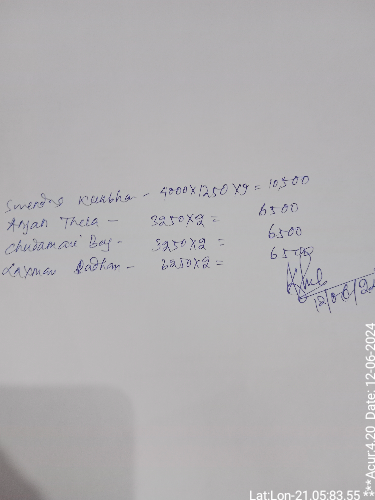 Surendra Kumbhar - 4000X1250X9 = 10,500
Anjan Thela - 3250X2 = 6500
Chudamani Bag - 3250X2 = 6500
Laxman Padhan - 3250X2 = 6500
12/06/24
Lat:Lon-21.05:83.55
***Acur:4.20 Date: 12-06-2024